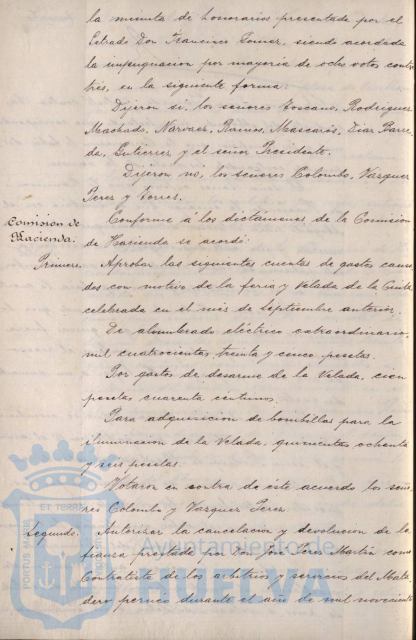 la minuta de honorarios presentada por el
Letrado Don Francisco siendo acordada
la impugnacion por mayoria de ocho votos contra
tres, en la siguiente forma:
Dijeron si, los señores Toscano, Rodriguez
Machado, Narvaez, Ramos, Mascarós, Diaz Barre-
da, Gutierrez y el señor Presidente.
Dijeron no, los señores Colombo, Vazquez
Perez y Torres.
Comisión de
Hacienda.
Conforme á los dictámenes de la Comision
de Hacienda se acordó:
Primero. Aprobar las siguientes cuentas de gastos causa-
dos con motivo de la feria y Velada de la Cinta
celebrada en el mes de Septiembre anterior.
De alumbrado eléctrico extraordinario
mil cuatrocientas treinta y cinco pesetas.
Por gastos de desarme de la Velada, cien
pesetas cuarenta centimos.
Para adquisicion de bombillas para la
iluminacion de la Velada, quinientas ochenta
y seis pesetas.
Votaron en contra de este acuerdo los seño-
res Colombo y Vazquez Perez.
Segundo. Autorizar la cancelacion y devolucion de la
fianza prestada por Don Perez Martin como
Contratista de los arbitrios y servicios del Mata-
dero publico durante el año de mil novecientos
PORTUS MARIS
ET TERRE
Ayuntamiento de
HUELVA